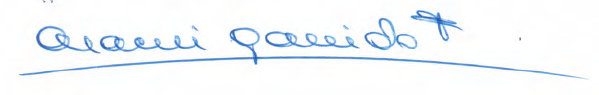 Arami Garrido